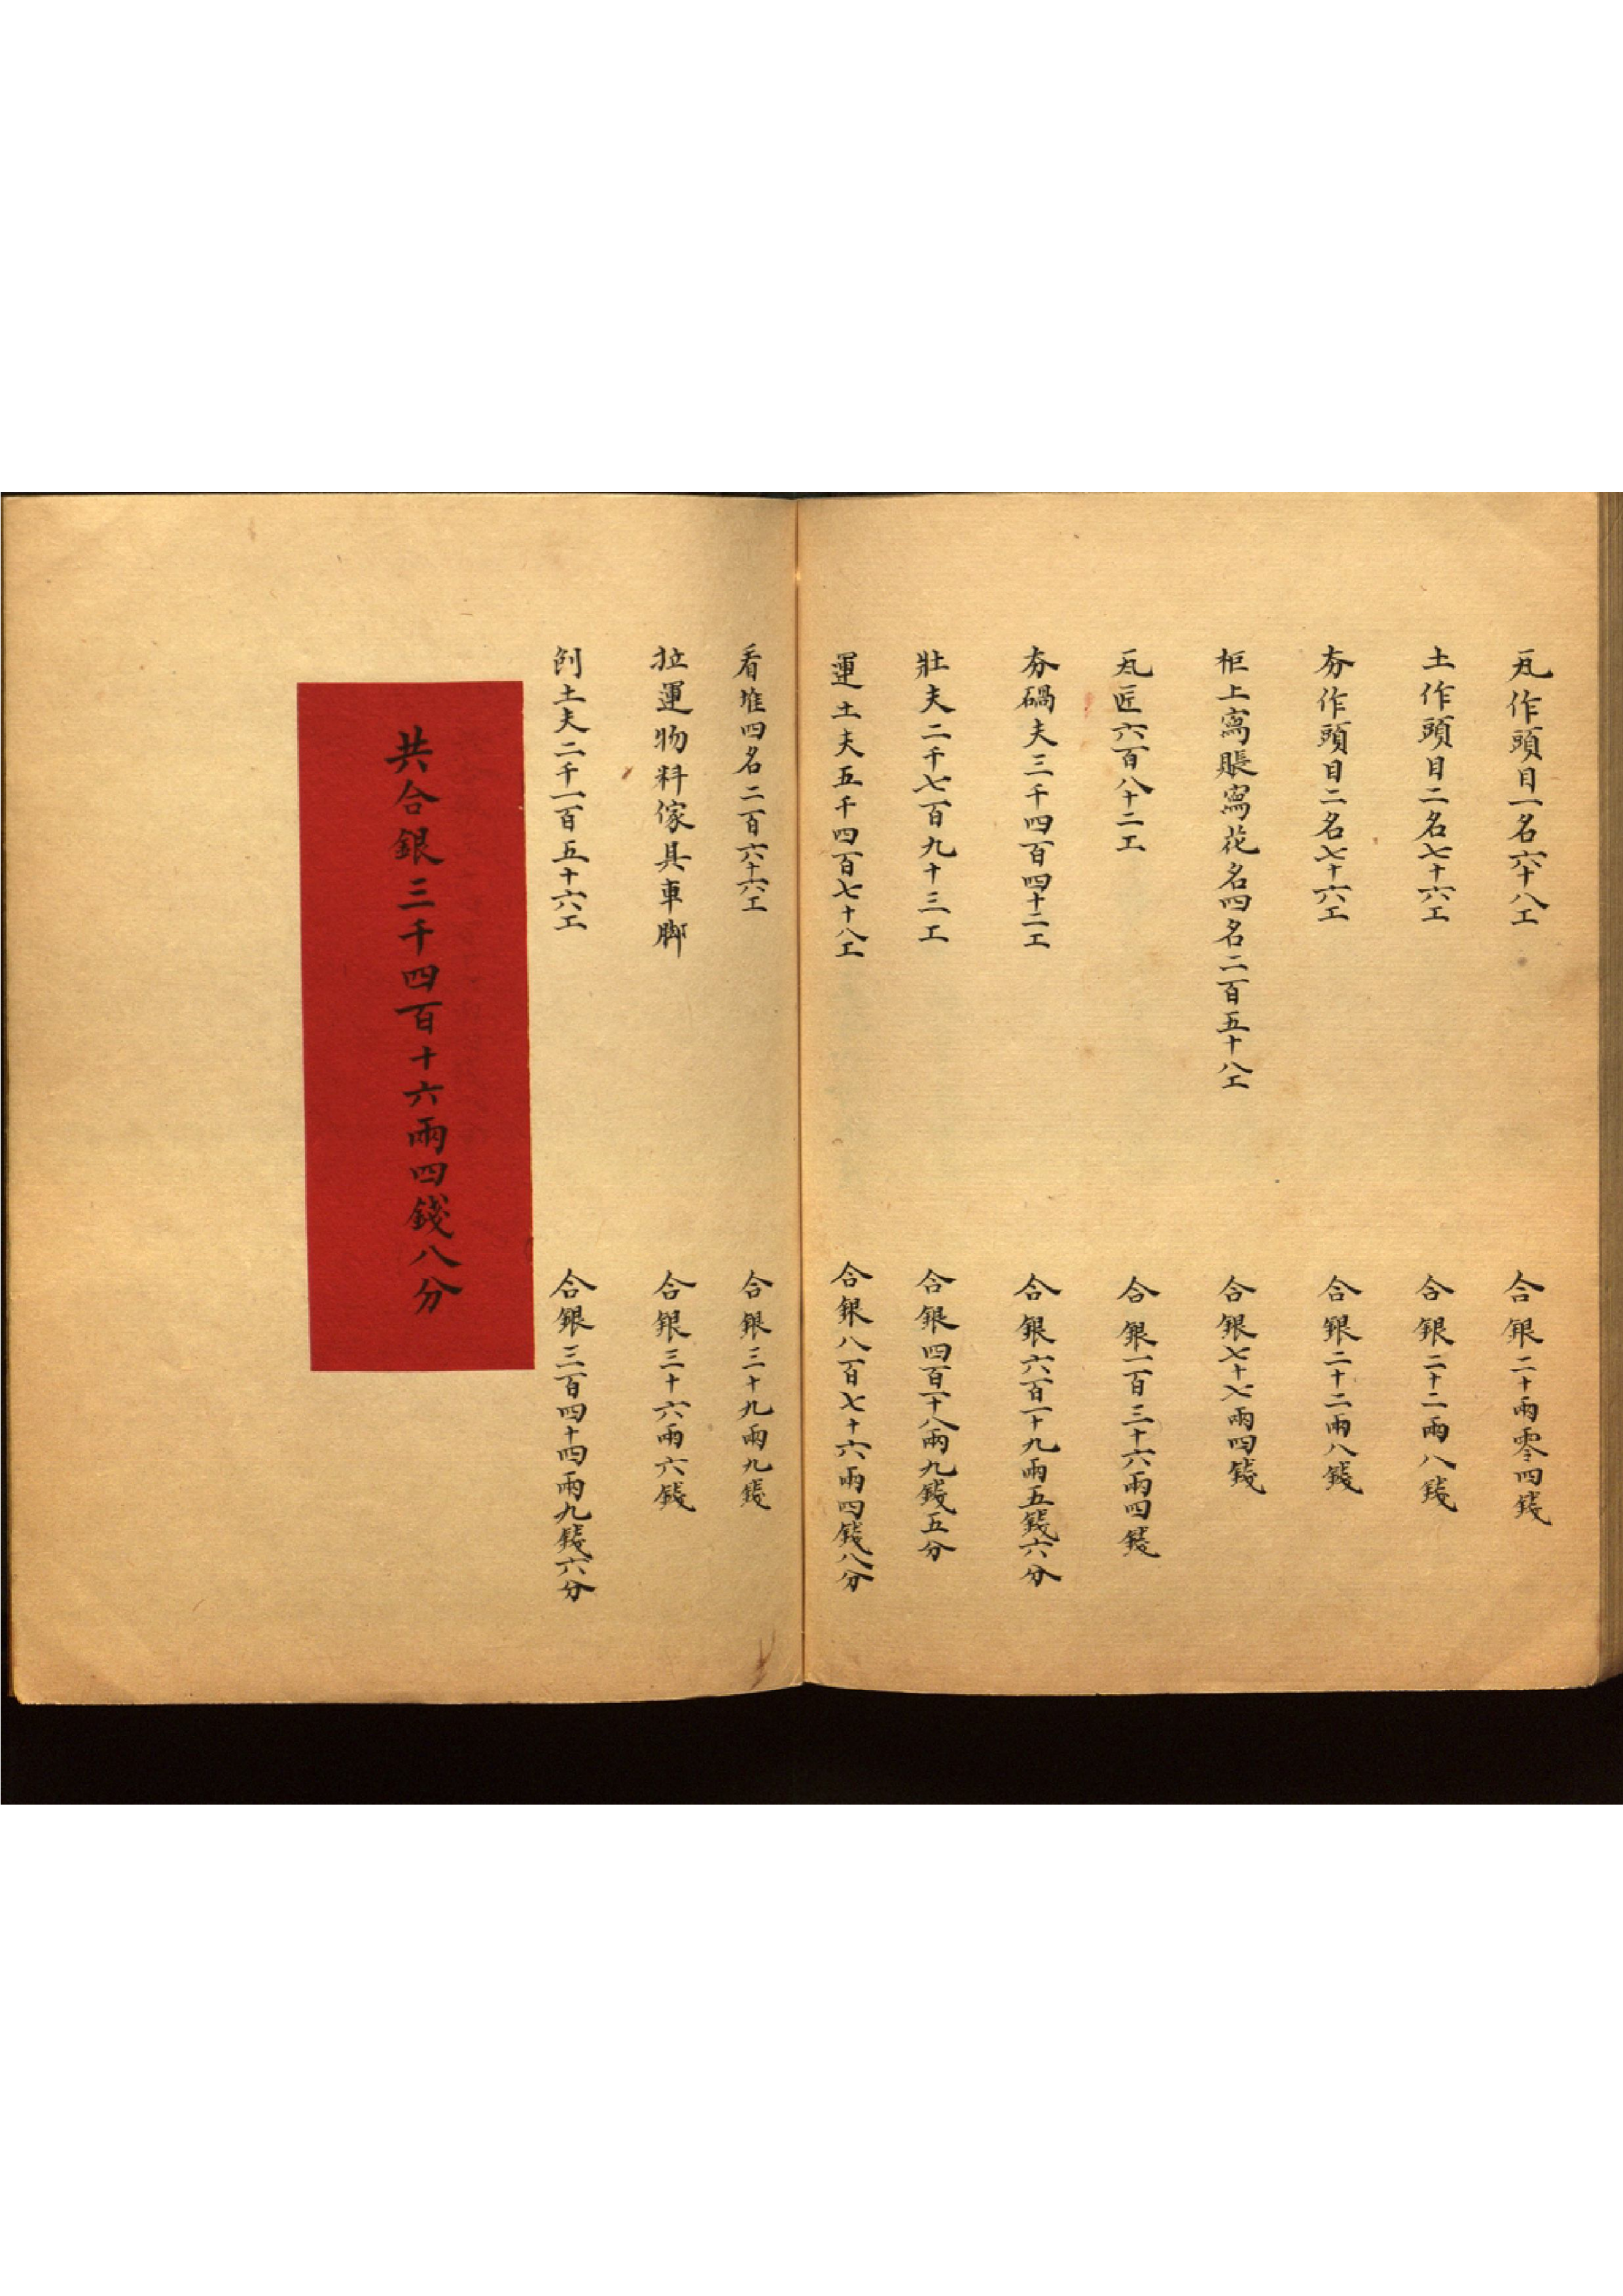 瓦作頭目一名六十八工 合銀二十兩零四錢
土作頭目二名七十六工 合銀二十二兩八錢
夯作頭目二名七十六工 合銀二十二兩八錢
柜上寫賬寫花名四名二百五十八工 合銀七十七兩四錢
瓦匠六百八十二工 合銀一百三十六兩四錢
夯碢夫三千四百四十二工 合銀六百一十九兩五錢六分
壯夫二千七百九十三工 合銀四百一十八兩九錢五分
運土夫五千四百七十八工 合銀八百七十六兩四錢八分
看堆四名二百六十六工 合銀三十九兩九錢
拉運物料傢具車脚 合銀三十六兩六錢
刨土夫二千一百五十六工 合銀三百四十四兩九錢六分
共合銀三千四百十六兩四錢八分